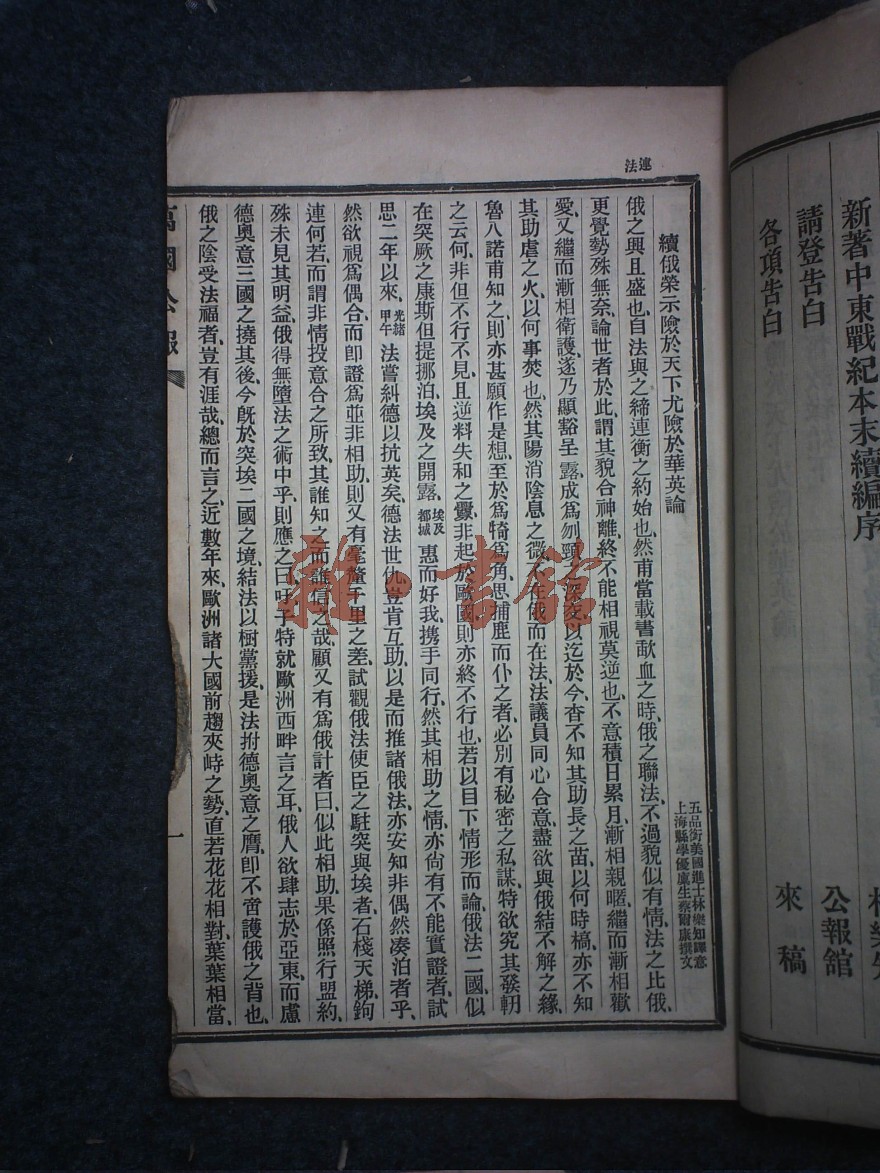 新著中東戰紀本末續編序
請登告白
公報館
各項告白
來稿
連法
續俄榮示險於天下尤險於華英論
五品銜美國進士林樂知譯意
上海縣學優廩生蔡爾康撰文
俄之興且盛也、自法與之締連衡之約始也、然甫當載書歃血之時、俄之聯法、不過貌似有情、法之比俄、
更覺勢殊無奈、論世者於此、謂其貌合神離、終不能相視莫逆也、不意積日累月、漸相親暱、繼而漸相歡
愛、又繼而漸相衛護、遂乃顯豁呈露、成爲刎頸之深交、以迄於今、杳不知其助長之苗、以何時槁、亦不知
其助虐之火、以何事焚也、然其陽消陰息之微、不在俄而在法、法議員同心合意、盡欲與俄結不解之緣、
魯八諾甫知之、則亦甚願作是想、至於爲犄爲角、思捕鹿而仆之者、必別有秘密之私謀、特欲究其發軔
之云何、非但不行不見、且逆料失和之釁、非起於歐國、則亦終不行也、若以目下情形而論、俄法二國、似
在突厥之康斯但提挪泊、埃及之開露、埃及都城惠而好我、攜手同行、然其相助之情、亦尙有不能實證者、試
思二年以來、光緒甲午法嘗糾德以抗英矣、德法世仇、豈肯互助、以是而推諸俄法、亦安知非偶然湊泊者乎、
然欲視爲偶合、而卽證爲並非相助、則又有毫釐千里之差、試觀俄法使臣之駐突與埃者、石棧天梯、鉤
連何若、而謂非情投意合之所致、其誰知之、而誰信之哉、顧又有爲俄計者曰、似此相助、果係照行盟約、
殊未見其明益、俄得無墮法之術中乎、則應之曰、吁、予特就歐洲西畔言之耳、俄人欲肆志於亞東、而慮
德奧意三國之撓其後、今旣於突埃二國之境、結法以樹黨援、是法拊德奧意之膺、卽不啻護俄之背也、
俄之陰受法福者、豈有涯哉、總而言之、近數年來、歐洲諸大國前趨夾峙之勢、直若花花相對、葉葉相當、
萬國公報
一
雜·書館